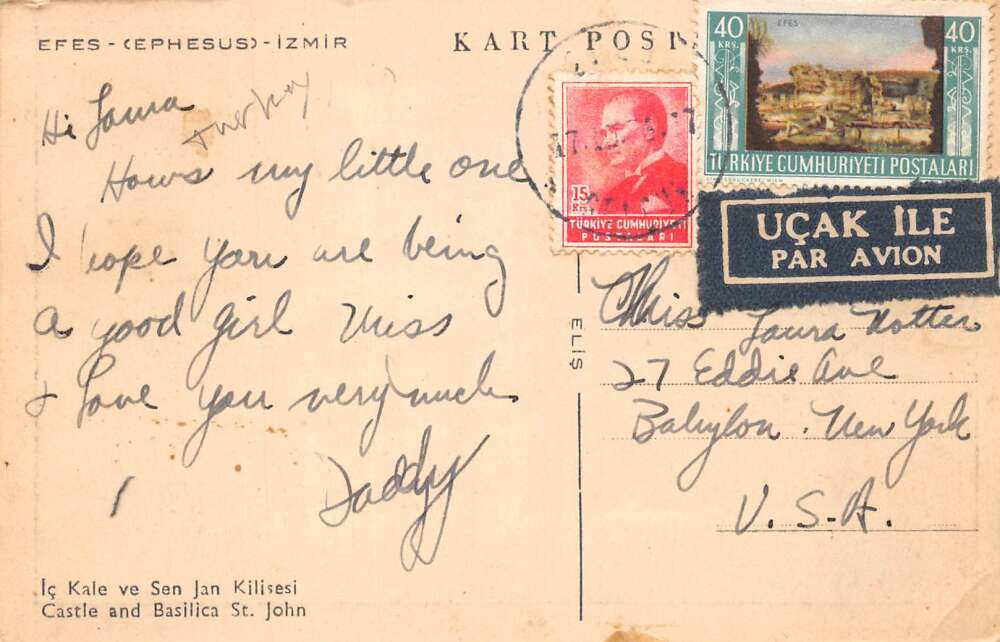 EFES - (EPHESUS) - İZMİR
KART POST
Hi Laura
Turkey
Hows my little one
I hope you are being
a good girl Miss
I Love you very much
Daddy
İç Kale ve Sen Jan Kilisesi
Castle and Basilica St. John
ELİŞ
15
KRŞ.
TÜRKİYE CUMHURİYETİ
POSTALARI
40
KRŞ.
EFES
40
KRŞ.
TÜRKİYE CUMHURİYETİ POSTALARI
UÇAK İLE
PAR AVION
Miss Laura Notter
27 Eddie Ave
Babylon. New York
U.S.A.